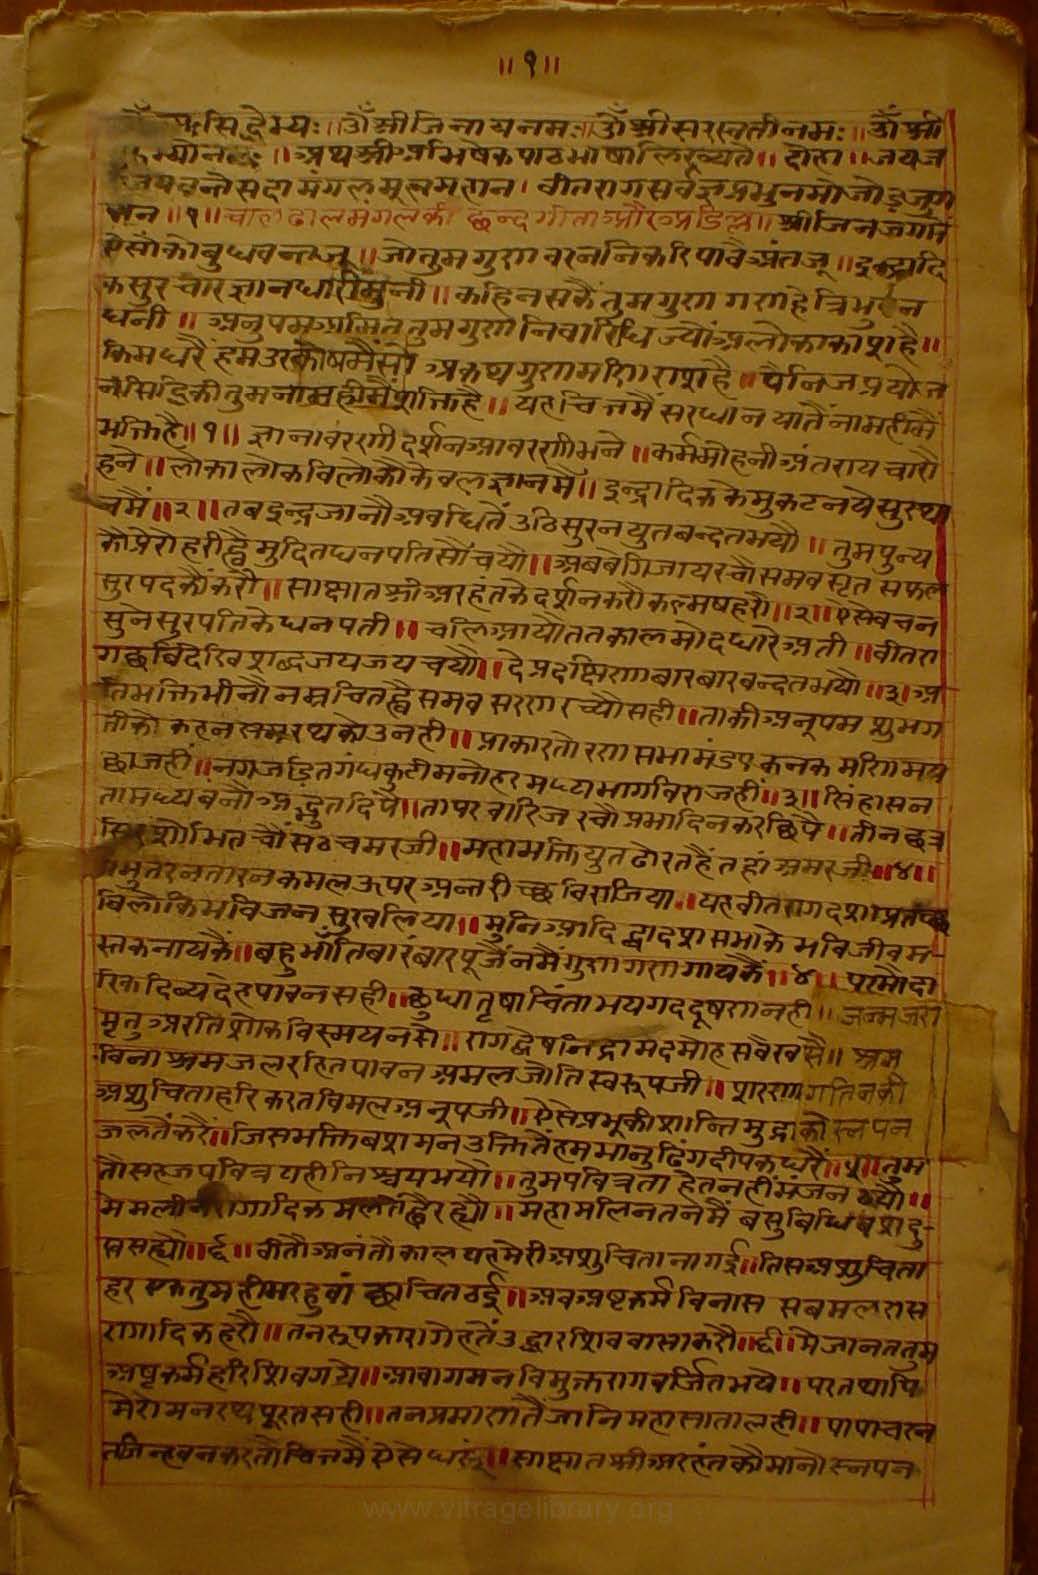 ॥ १ ॥
सिद्धेभ्यः ॥ ॐ श्री जिनाय नमः ॥ ॐ श्री सरस्वती नमः ॥ ॐ श्री
॥ अथ श्री अभिषेक पाठ भाषा लिख्यते ॥ दोहा ॥ जय ज
जयवन्तो सदा मंगल मूल महान । वीतराग सर्वज्ञ प्रभु नमो जोड़ जुग
॥ १ ॥ चाल ढाल मंगल की छन्द गीता और अडिल्ल ॥ श्री जिन जगत में
ऐसो को बुधवन्त जू ॥ जो तुम गुरण वरननि करि पावै अंत जू ॥ इन्द्रादि
क सुर चार ज्ञान धारी मुनी ॥ कहि न सकै तुम गुरण गरण हे त्रिभुवन
धनी ॥ अनुपम अमित तुम गुरण निवारिधि ज्यों अलोकाकाश है ॥
किम धरैं हम उर कोष मैं सो अकथ गुरण मरिण राश है ॥ पै निज प्रयोज
न सिद्धि की तुम नाम ही मैं शक्ति है ॥ यह चित्त मैं सरधान यातैं नाम ही मैं
भक्ति है ॥ १ ॥ ज्ञानावररणी दर्शन आवररणी भने ॥ कर्म मोहनी अंतराय चारो
हने ॥ लोकालोक विलोको केवल ज्ञान मैं ॥ इन्द्रादिक के मुकट नये सुरथा
न मैं ॥ २ ॥ तब इन्द्र जानौ अवधि तैं उठि सुरन युत बन्दत भयौ ॥ तुम पुन्य
को प्रेरो हरी ह्वै मुदित धनपति सौं चयौ ॥ अब बेगि जाय रचौ समवसृत सफल
सुर पद कौं करौ ॥ साक्षात श्री अरहंत के दर्शन करौ कल्मष हरौ ॥ २ ॥ ऐसे वचन
सुने सुरपति के धनपती ॥ चलि आयौ ततकाल मोद धारै अती ॥ वीतरा
ग छबि देखि शब्द जय जय चयौ ॥ दे प्रदक्षिरणा बार बार वन्दत भयौ ॥ ३ ॥ अ
ति भक्ति भीनौ नम्र चित ह्वै समवसररण रच्यौ सही ॥ ताकी अनूपम शुभ ग
ती को कहन समरथ कोउ नही ॥ प्राकार तोररण सभा मंडप कनक मरिणमय
छाजहीं ॥ नग जड़ित गंधकुटी मनोहर मध्य भाग विराजहीं ॥ ३ ॥ सिंहासन
ता मध्य बनौ अद्भुत दिपै ॥ ता पर वारिज रचौ प्रभा दिनकर छिपै ॥ तीन छत्र
सिर शोभित चौंसठ चमर जी ॥ महा भक्ति युत ढोरत हैं तहां अमर जी ॥ ४ ॥
प्रभु तरन तारन कमल ऊपर अन्तरीच्छ विराजिया ॥ यह वीतराग दशा प्रतच्छ
बिलोकि भविजन सुख लिया ॥ मुनि आदि द्वादश सभा के भवि जीव म-
स्तक नाय कैं ॥ बहु भाँति बारंबार पूजैं नमैं गुरण गरण गाय कैं ॥ ४ ॥ परमौदा
रिक दिव्य देह पावन सही ॥ छुधा तृषा चिंता भय गद दूषरण नही ॥ जन्म जरा
मृतु अरति शोक विस्मय नसे ॥ राग द्वेष निद्रा मद मोह सबै खसै ॥ श्रम
बिना श्रम जल रहित पावन अमल जोति स्वरूप जी ॥ शररणागतिन की
अशुचिता हरि करत विमल अनूप जी ॥ ऐसै प्रभू की शान्ति मुद्रा को स्नपन
जल तैं करैं ॥ जिस भक्ति बश मन उक्ति तैं हम भानु ढिंग दीपक धरैं ॥ ५ ॥ तुम
तौ सहज पवित्र यही निश्चय भयौ ॥ तुम पवित्रता हेत नहीं मंजन ठयौ ॥
मे मलीन रागादिक मल तैं ह्वै रह्यौ ॥ महा मलिन तन मैं बसु बिधि बश दु-
ख सह्यौ ॥ ६ ॥ वीतौ अनंतौ काल यह मेरी अशुचिता ना गई ॥ तिस अशुचिता
हर एक तुम ही भरहु वांछा चित ठई ॥ अब अष्ट कर्म विनास सब मल रास
रागादिक हरौ ॥ तन रूप कारागेह तैं उद्धार शिव वासा करौ ॥ ६ ॥ मे जानत तुम
अष्ट कर्म हरि शिव गये ॥ आवागमन विमुक्त राग वर्जित भये ॥ पर तथापि
मेरो मनरथ पूरत सही ॥ तन प्रमारण तैं जानि महा साता लही ॥ पापाचरन
तजि न्हवन करतौ चित्त मैं ऐसे धरूं ॥ साक्षात श्री अरहंत कौ मानो स्नपन
www.vitragelibrary.org